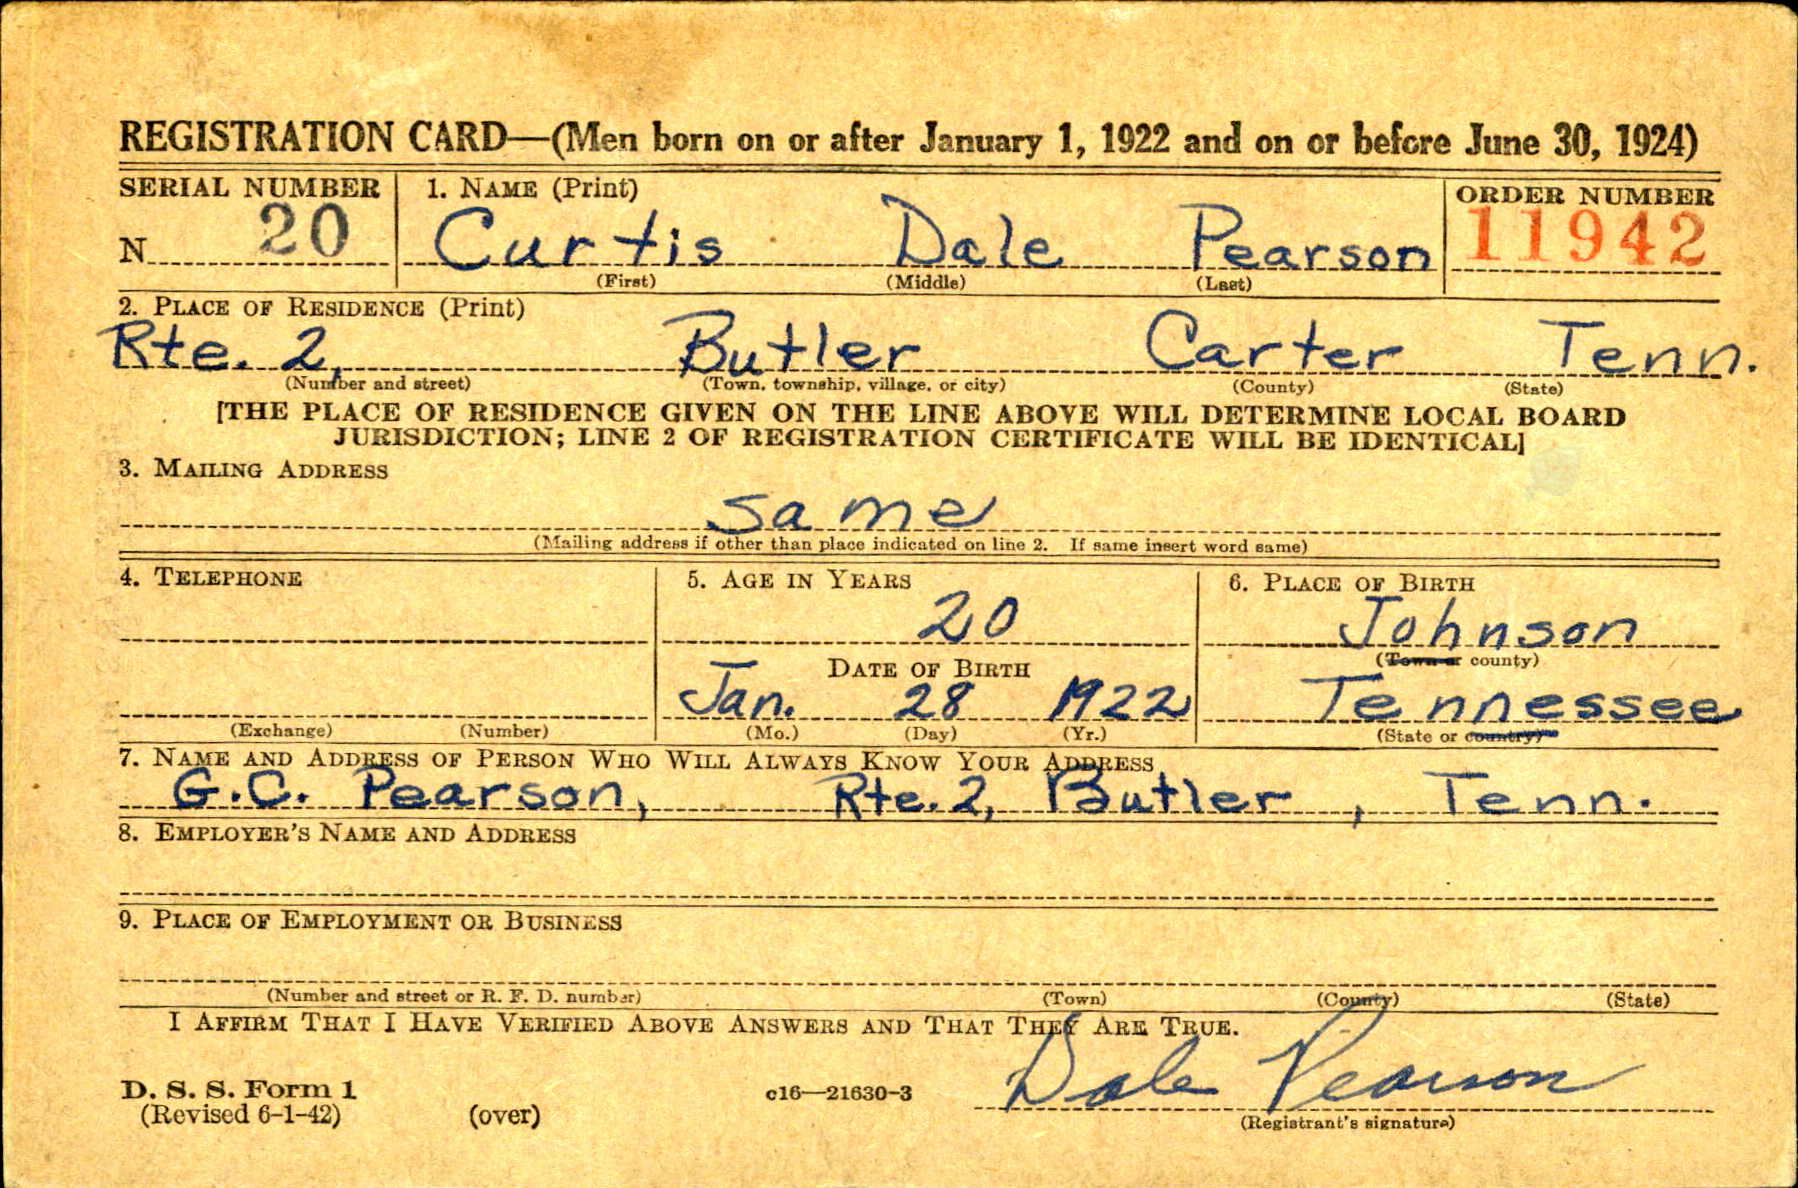 REGISTRATION CARD—(Men born on or after January 1, 1922 and on or before June 30, 1924)
SERIAL NUMBER 1. NAME (Print) ORDER NUMBER
N 20 Curtis Dale Pearson 11942
(First) (Middle) (Last)
2. PLACE OF RESIDENCE (Print)
Rte. 2, Butler Carter Tenn.
(Number and street) (Town, township, village, or city) (County) (State)
[THE PLACE OF RESIDENCE GIVEN ON THE LINE ABOVE WILL DETERMINE LOCAL BOARD
JURISDICTION; LINE 2 OF REGISTRATION CERTIFICATE WILL BE IDENTICAL]
3. MAILING ADDRESS
same
(Mailing address if other than place indicated on line 2. If same insert word same)
4. TELEPHONE 5. AGE IN YEARS 6. PLACE OF BIRTH
20 Johnson
DATE OF BIRTH (Town or county)
Jan. 28 1922 Tennessee
(Exchange) (Number) (Mo.) (Day) (Yr.) (State or country)
7. NAME AND ADDRESS OF PERSON WHO WILL ALWAYS KNOW YOUR ADDRESS
G.C. Pearson, Rte. 2, Butler, Tenn.
8. EMPLOYER'S NAME AND ADDRESS
9. PLACE OF EMPLOYMENT OR BUSINESS
(Number and street or R. F. D. number) (Town) (County) (State)
I AFFIRM THAT I HAVE VERIFIED ABOVE ANSWERS AND THAT THEY ARE TRUE.
D. S. S. Form 1 c16—21630-3 Dale Pearson
(Revised 6-1-42) (over) (Registrant's signature)